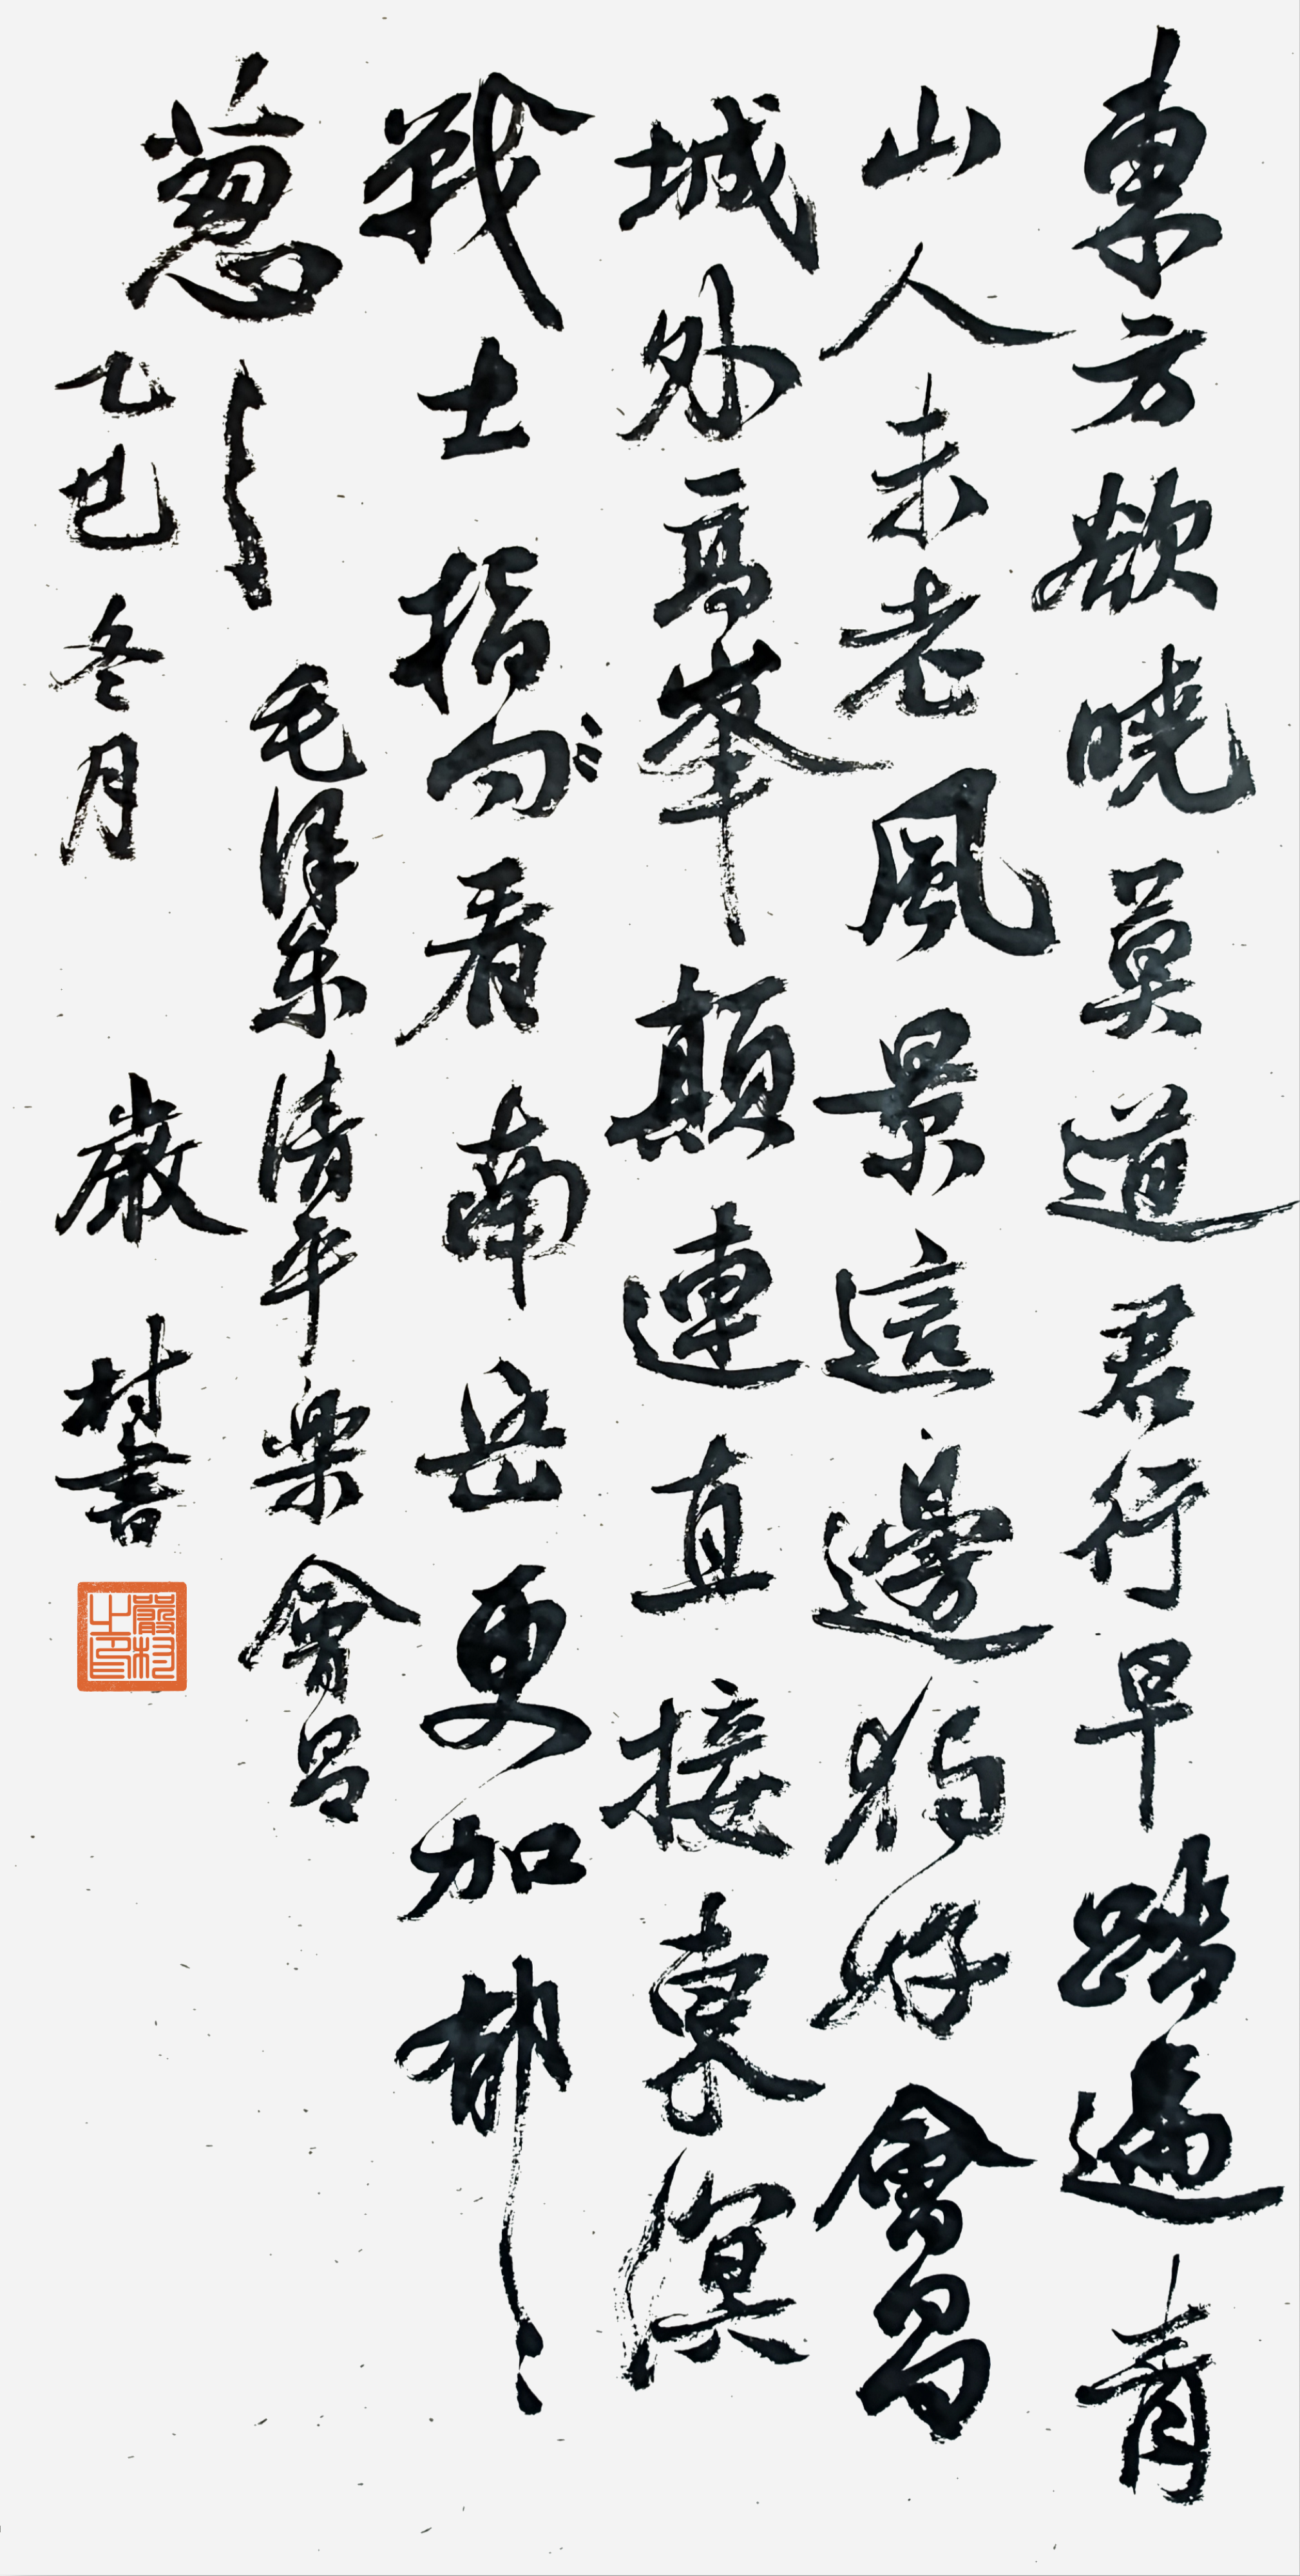 東方欲曉莫道君行早踏遍青
山人未老風景這邊獨好會昌
城外高峯顛連直接東溟
戰士指向看南岳更加郁〻
葱〻 毛澤东清平樂會昌
乙巳冬月 嚴村書
嚴村之印